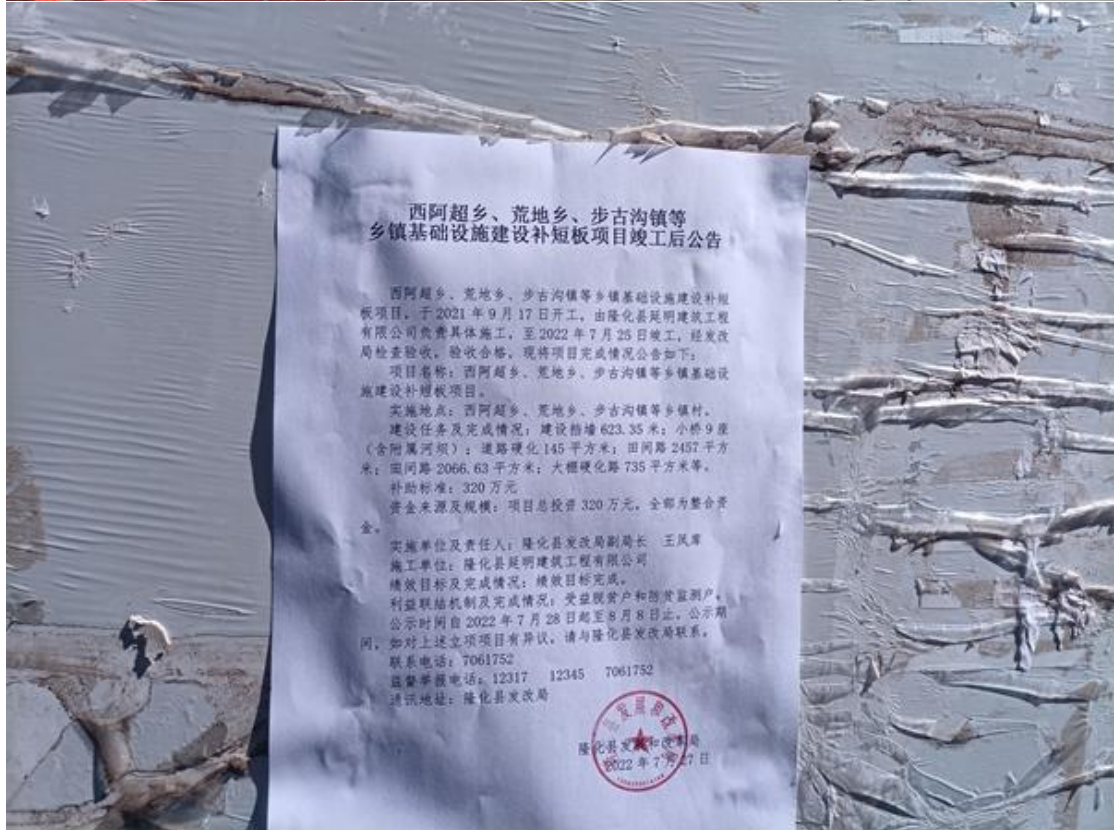 西阿超乡、荒地乡、步古沟镇等
乡镇基础设施建设补短板项目竣工后公告
西阿超乡、荒地乡、步古沟镇等乡镇基础设施建设补短
板项目，于2021年9月17日开工，由隆化县延明建筑工程
有限公司负责具体施工，至2022年7月25日竣工，经发改
局检查验收，验收合格，现将项目完成情况公告如下：
项目名称：西阿超乡、荒地乡、步古沟镇等乡镇基础设
施建设补短板项目。
实施地点：西阿超乡、荒地乡、步古沟镇等乡镇村。
建设任务及完成情况：建设挡墙623.35米；小桥9座
（含附属河坝）；道路硬化145平方米；田间路2457平方
米；田间路2066.63平方米；大棚硬化路735平方米等。
补助标准：320万元
资金来源及规模：项目总投资320万元，全部为整合资
金。
实施单位及责任人：隆化县发改局副局长 王凤库
施工单位：隆化县延明建筑工程有限公司
绩效目标及完成情况：绩效目标完成。
利益联结机制及完成情况：受益脱贫户和防贫监测户。
公示时间自2022年7月28日起至8月8日止，公示期
间，如对上述立项项目有异议，请与隆化县发改局联系。
联系电话：7061752
监督举报电话：12317 12345 7061752
通讯地址：隆化县发改局
隆化县发展和改革局
2022年7月27日